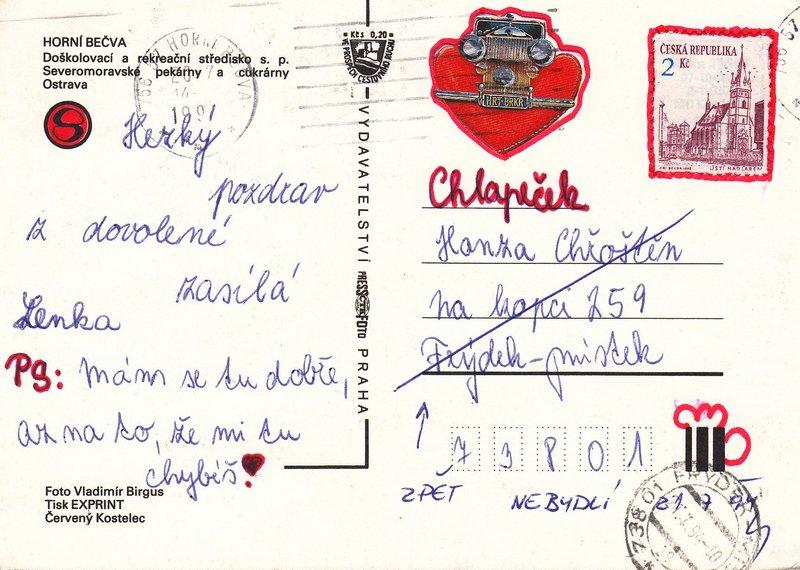 HORNÍ BEČVA
Doškolovací a rekreační středisko s. p.
Severomoravské pekárny a cukrárny
Ostrava
Hezký
pozdrav
z dovolené
zasílá
Lenka
PS: Mám se tu dobře,
až na to, že mi tu
chybíš!
Foto Vladimír Birgus
Tisk EXPRINT
Červený Kostelec
Kčs 0,20
VE PROSPĚCH CESTOVNÍHO RUCHU
VYDAVATELSTVÍ PRESSFOTO PRAHA
HORNÍ BEČVA
ČESKÁ REPUBLIKA
2 Kč
ÚSTÍ NAD LABEM
Chlapeček
Honza Chroštěn
na kopci 259
Frýdek-místek
7 3 8 0 1
ZPĚT
NEBYDLÍ
21.7
738 01 FRÝDEK